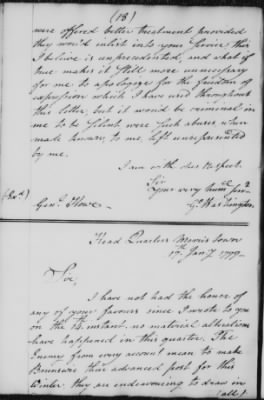 (18)
were offered better treatment provided
they would enlist into your Service this
I believe is unprecedented, and what if
true makes it still more unnecessary
for me to apologize for the freedom of
expression which I have used throughout
this letter, but it would be criminal in
me to be silent, were such abuses, when
made known, to me left unrepresented
by me.
I am with due respect
Sir
your very humble
Genl. Howe
G Washington
Head Quarters Morris town
Jany
Sir,
I have not had the honor of
any of your favours since I wrote to you
on the 14 instant. no material alterations
have happened in this quarter. The
Enemy from every account mean to make
Brunswic their advanced post for this
Winter. they are endeavouring to draw in
(all)